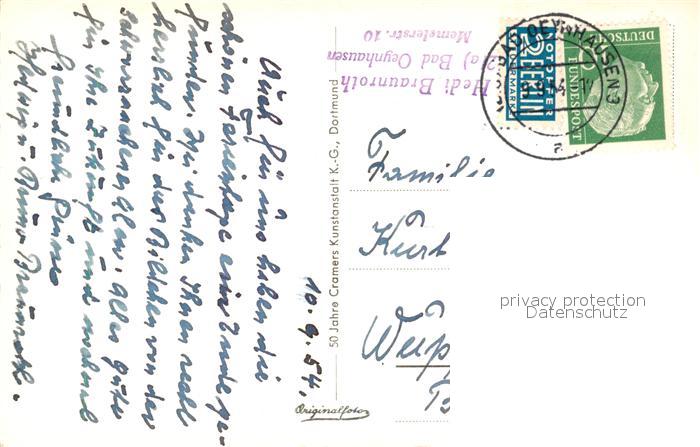 10.9.54.
Auch für uns haben die
schönen Ferientage ein Ende ge-
funden. Wir danken Ihnen recht
herzlich für das Bildchen von der
Schwarzachen Alm. Alles gute
für Ihre Zukunft und nochmal
herzliche Grüße
Braunroth.
50 Jahre Cramers Kunstanstalt K.-G., Dortmund
Originalfoto
Hedi Braunroth
a) Bad Oeynhausen
Memelerstr. 10
NOTOPFER
2 BERLIN
STEUERMARKE
DEUTSCHE
BUNDESPOST
BAD OEYNHAUSEN 3
Familie
Kurt
Wup
privacy protection
Datenschutz